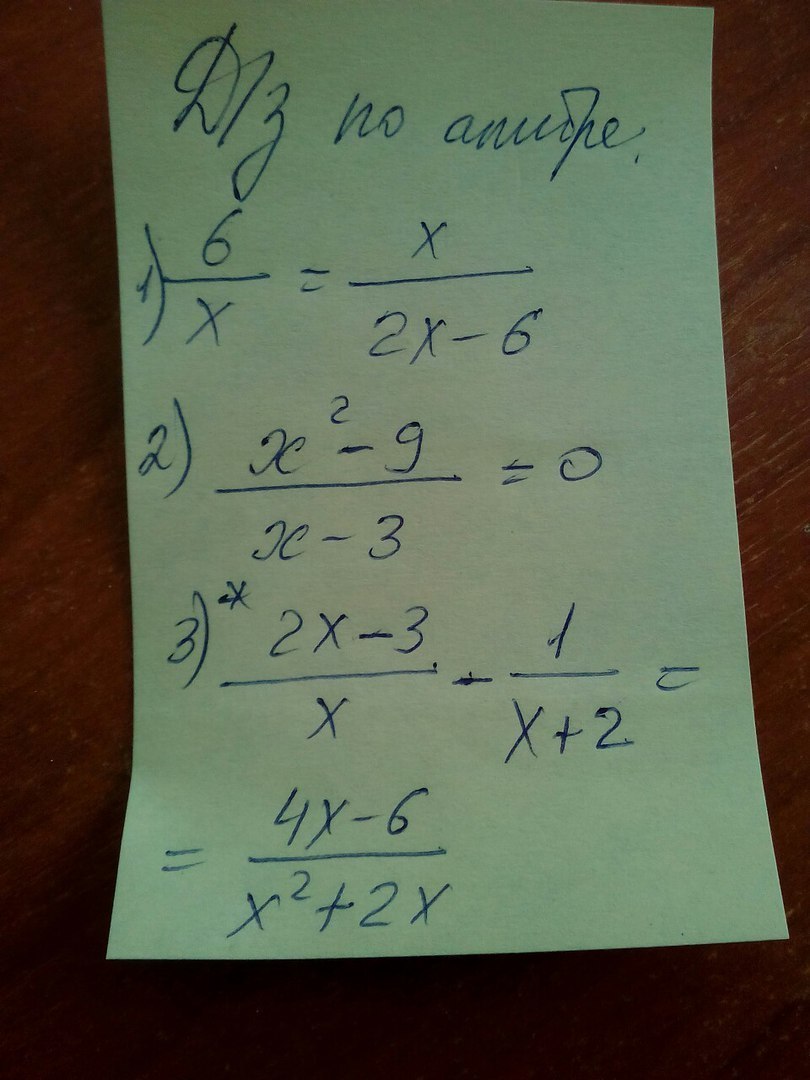 Д/з по алгебре.
1) 6/x = x/(2x-6)
2) (x²-9)/(x-3) = 0
3)* (2x-3)/x - 1/(x+2) =
= (4x-6)/(x²+2x)